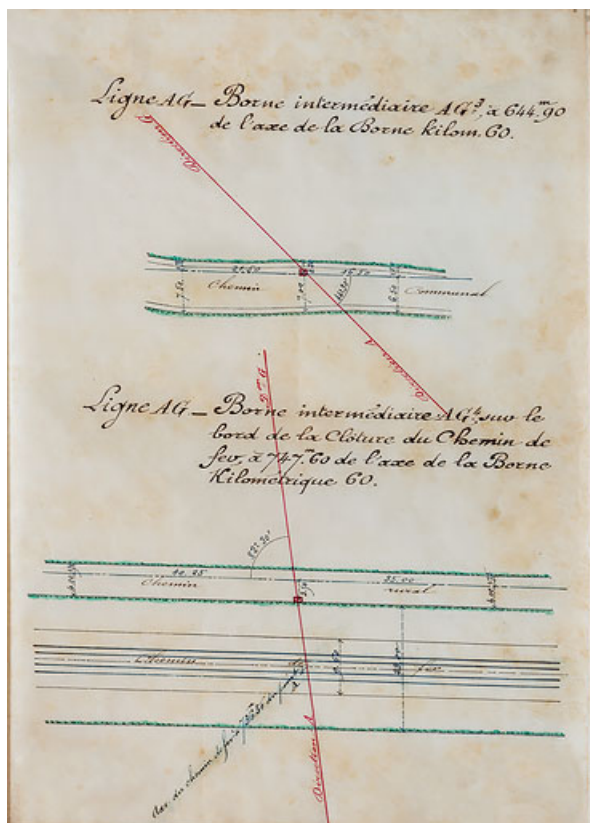 Ligne AG_ Borne intermédiaire AG³, à 644.ᵐ90
de l'axe de la Borne kilom. 60.
Direction G
21.50
15.50
7.50
7.00
6.50
Chemin
Communal
Direction A
Ligne AG_ Borne intermédiaire AG⁴ sur le
bord de la Clôture du Chemin de
fer, à 747.ᵐ60 de l'axe de la Borne
Kilométrique 60.
82° 30'
35.00
Chemin
rural
Chemin
fer
Axe du chemin de fer à
Direction A